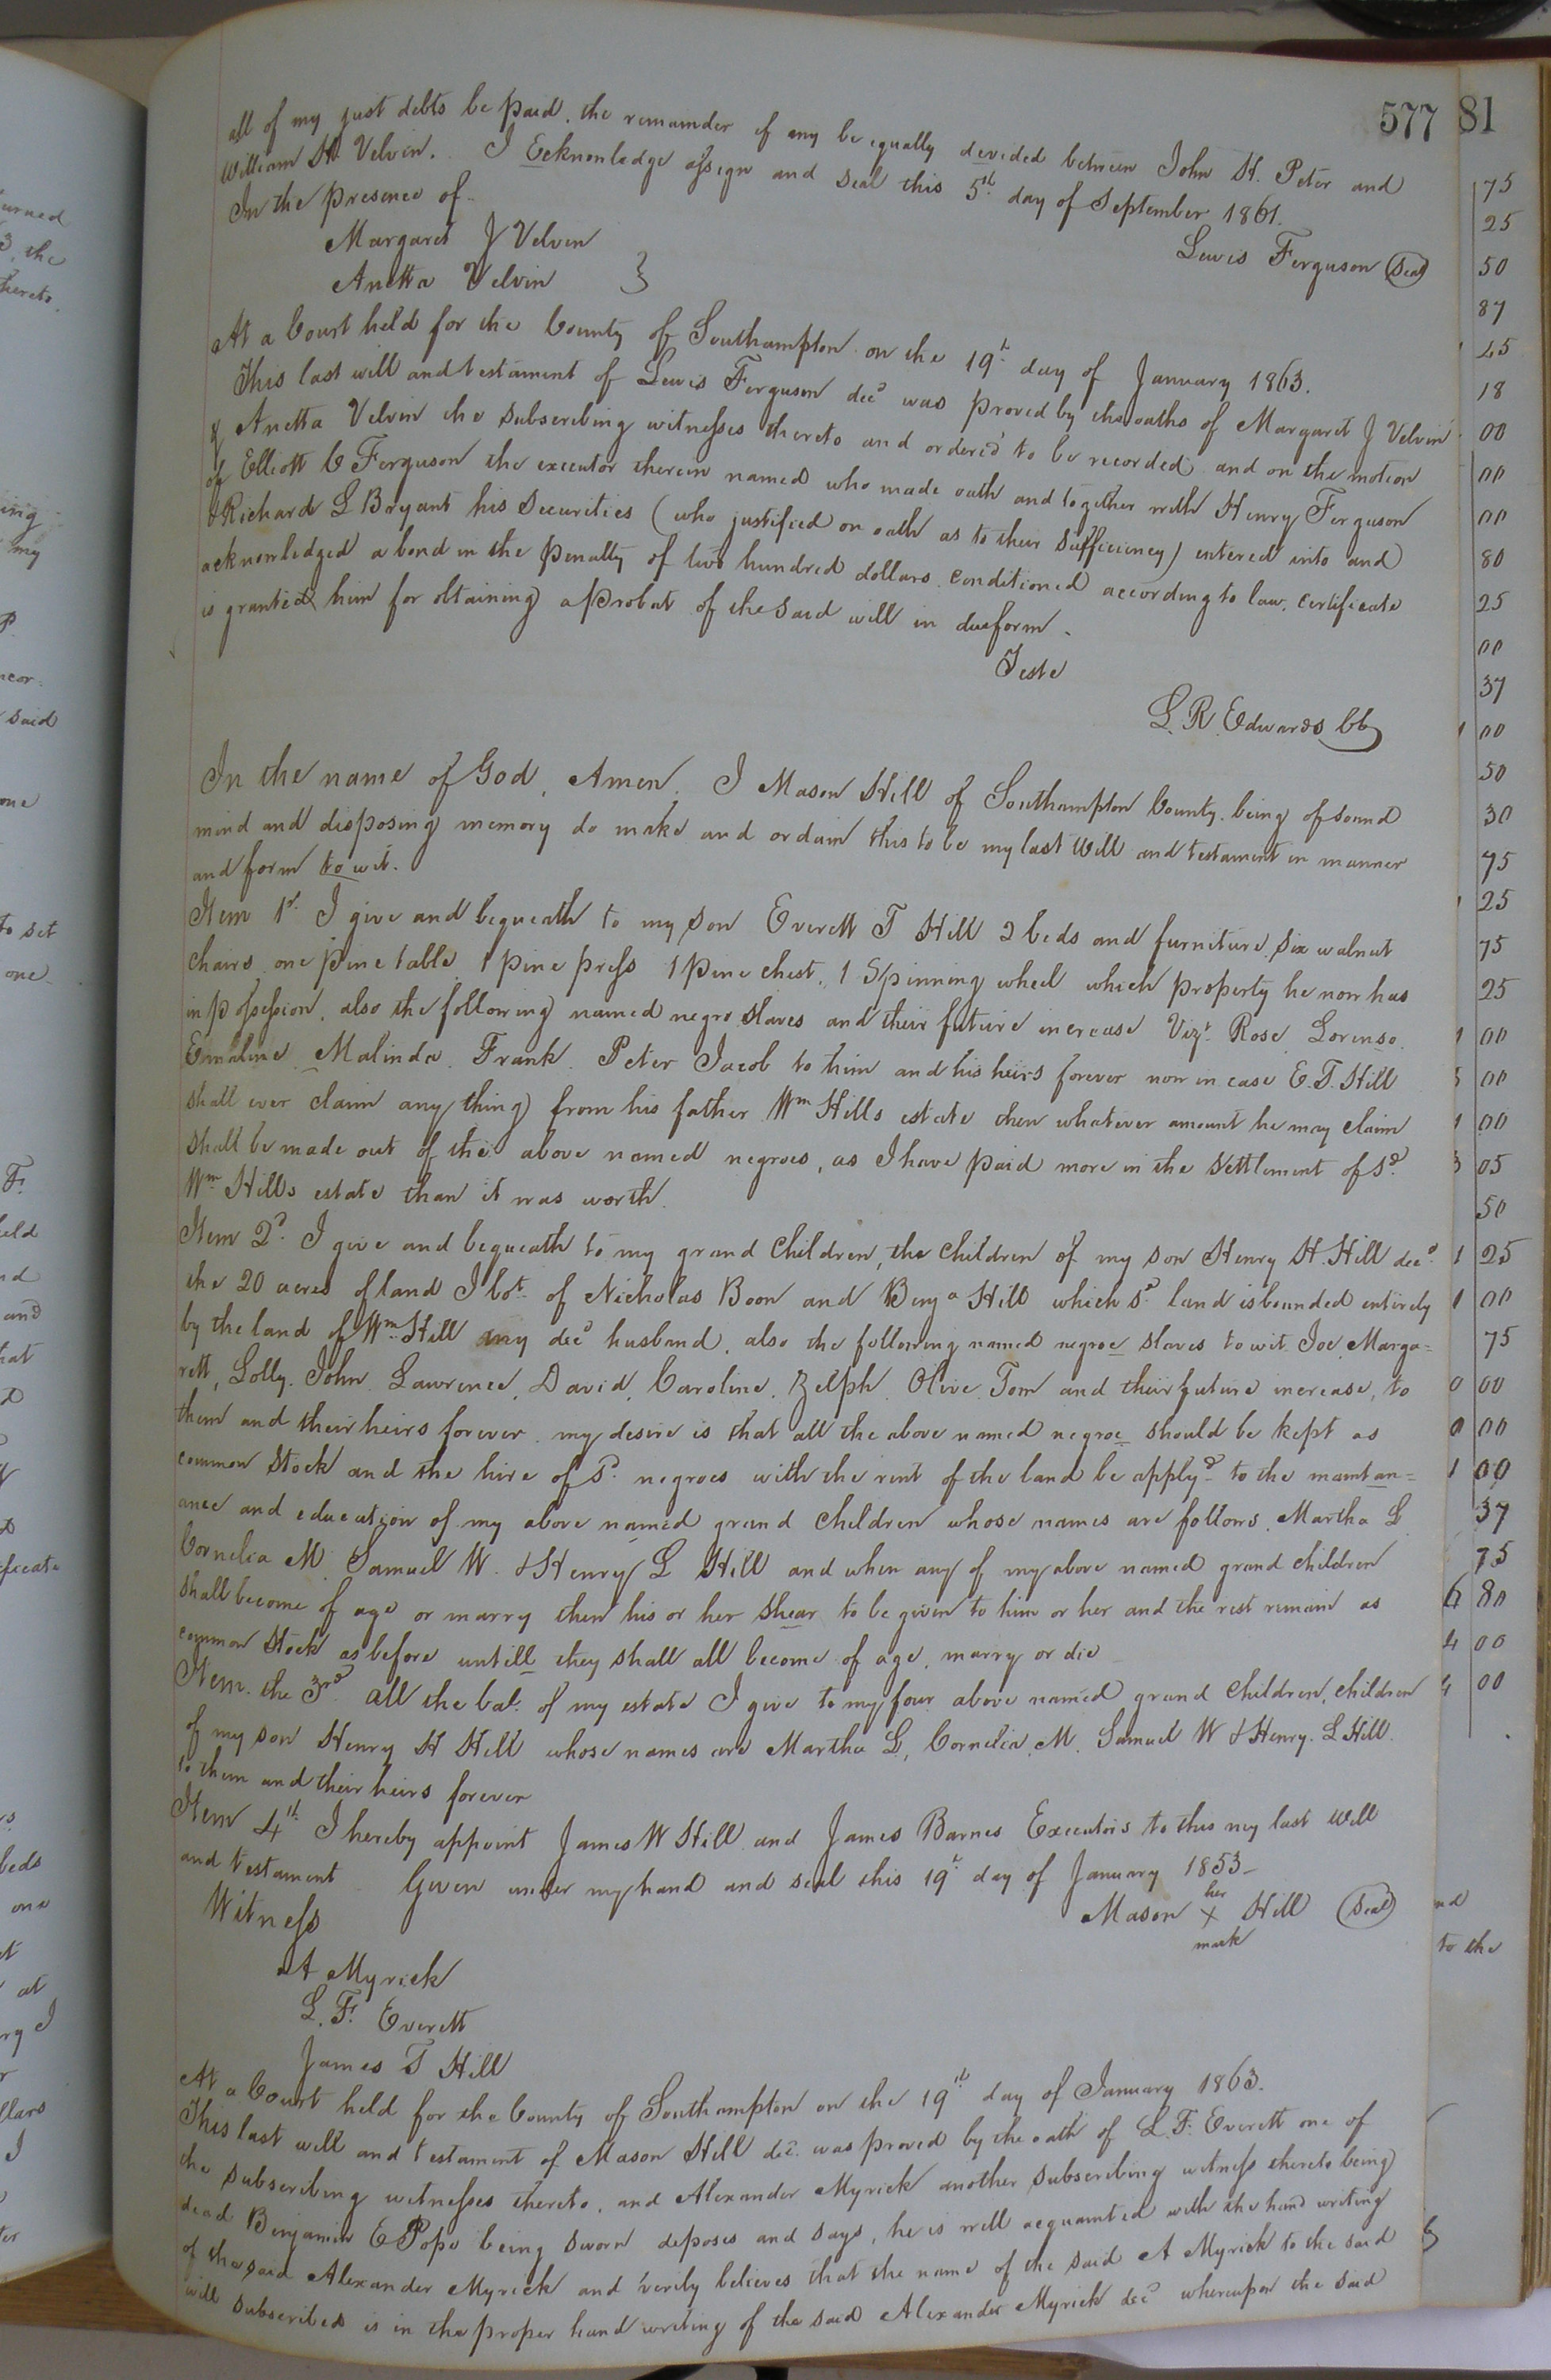 577
all of my just debts be paid. the remainder if any be equally devided between John H. Peter and
William H. Velvin. I Ecknowledge assign and seal this 5th day of September 1861.
In the presence of
Lewis Ferguson (Seal)
Margaret J Velvin
Anetta Velvin }
At a Court held for the County of Southampton on the 19th day of January 1863.
This last will and testament of Lewis Ferguson decd was proved by the oaths of Margaret J Velvin
& Anetta Velvin the subscribing witnesses thereto and ordered to be recorded and on the motion
of Elliott C Ferguson the executor therein named who made oath and together with Henry Ferguson
& Richard L Bryant his securities (who justified on oath as to their sufficiency) entered into and
acknowledged a bond in the penalty of two hundred dollars conditioned according to law. certificate
is granted him for obtaining a probat of the said will in due form.
Teste
L. R. Edwards CC
In the name of God, Amen. I Mason Hill of Southampton County being of sound
mind and disposing memory do make and ordain this to be my last Will and testament in manner
and form to wit.
Item 1st. I give and bequeath to my son Everett T Hill 2 beds and furniture six walnut
chairs one pine table 1 pine press 1 pine chest, 1 Spinning wheel which property he now has
in possession, also the following named negro slaves and their future increase Vizt Rose Lorenso
Emaline Malinda Frank Peter Jacob to him and his heirs forever now in case E. T. Hill
shall ever claim any thing from his father Wm Hills estate then whatever amount he may claim
shall be made out of the above named negroes, as I have paid more in the settlement of sd
Wm Hills estate than it was worth.
Item 2d. I give and bequeath to my grand Children, the Children of my son Henry H. Hill decd
the 20 acres of land I bot. of Nicholas Boon and Benja Hill which sd land is bounded entirely
by the land of Wm Hill my decd husband, also the following named negroe slaves to wit Joe Marga=
rett, Lolly. John Lawrence, David, Caroline, Zelph Olive Tom and their future increase, to
them and their heirs forever my desire is that all the above named negroe should be kept as
common stock and the hire of sd negroes with the rent of the land be applyd to the maintan=
ance and education of my above named grand Children whose names are follows. Martha L
Cornelia M. Samuel W. & Henry L Hill and when any of my above named grand children
shall become of age or marry then his or her shear to be given to him or her and the rest remain as
common stock as before untill they shall all become of age, marry or die
Item the 3rd. all the bal. of my estate I give to my four above named grand Children, children
of my son Henry H Hill whose names are Martha L, Cornelia M. Samuel W & Henry. L Hill.
to them and their heirs forever
Item 4th I hereby appoint James W Hill and James Barnes Executors to this my last Will
and testament Given under my hand and seal this 19th day of January 1853-
Witness
her
Mason X Hill (Seal)
mark
A Myrick
L. F. Everett
James T Hill
At a Court held for the County of Southampton on the 19th day of January 1863.
This last will and testament of Mason Hill decd. was proved by the oath of L. F. Everett one of
the subscribing witnesses thereto, and Alexander Myrick another subscribing witness thereto being
dead Benjamin E Pope being sworn deposes and says, he is well acquainted with the hand writing
of the said Alexander Myrick and verily believes that the name of the said A Myrick to the said
will subscribed is in the proper hand writing of the said Alexander Myrick decd whereupon the said
81
75
25
50
87
45
18
00
00
00
80
25
00
37
1 00
50
30
75
25
75
25
00
00
1 00
3 05
50
1 25
1 00
75
0 00
0 00
1 00
37
75
6 80
4 00
4 00
to the